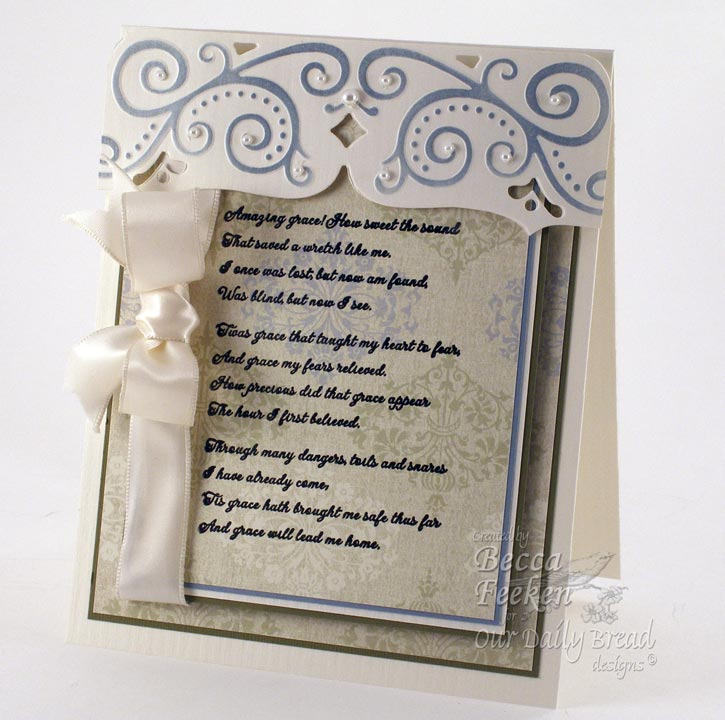 Amazing grace! How sweet the sound
That saved a wretch like me.
I once was lost, but now am found,
Was blind, but now I see.
'Twas grace that taught my heart to fear,
And grace my fears relieved.
How precious did that grace appear
The hour I first believed.
Through many dangers, toils and snares
I have already come,
'Tis grace hath brought me safe thus far
And grace will lead me home.
Created by
Becca
Feeken
for
Our Daily Bread
designs©